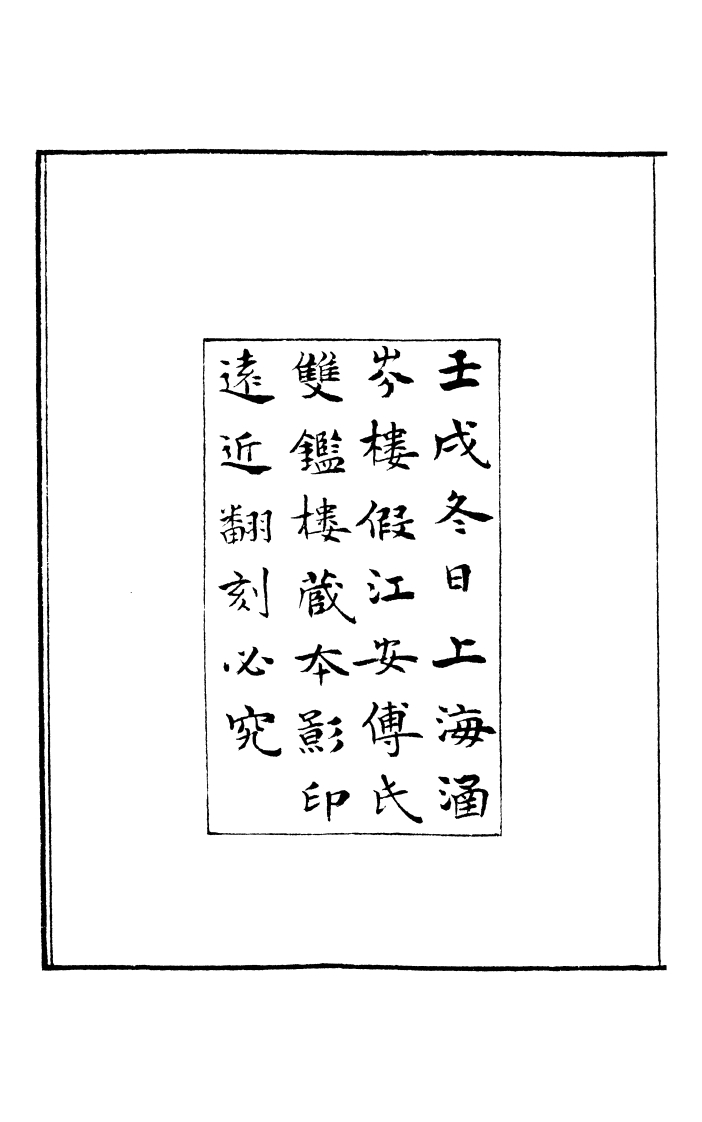 壬戌冬日上海涵
岑樓假江安傅氏
雙鑑樓藏本影印
遠近翻刻必究